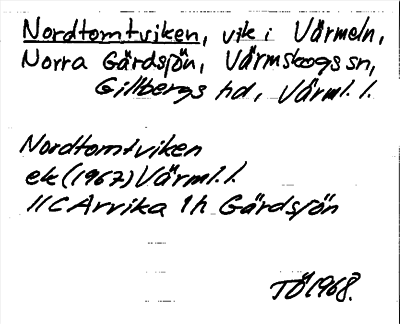 Nordtomtviken, vik i Värmeln,
Norra Gärdsjön, Värmskogs sn,
Gillbergs hd, Värml. l.
Nordtomtviken
ek (1967) Värml. l.
11C Arvika 1h Gärdsjön
TÖ 1968.